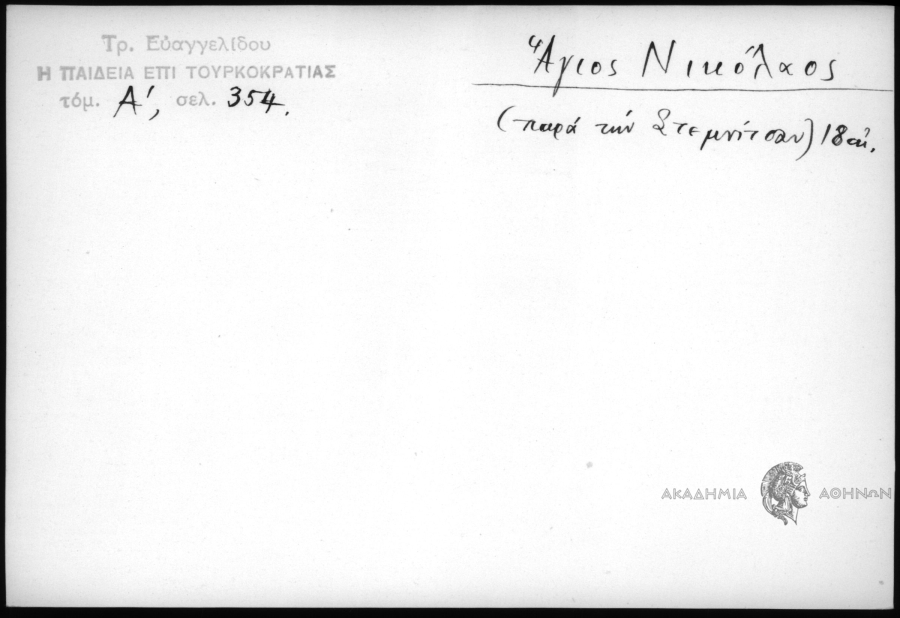 Τρ. Εὐαγγελίδου
Η ΠΑΙΔΕΙΑ ΕΠΙ ΤΟΥΡΚΟΚΡΑΤΙΑΣ
τόμ. Α', σελ. 354.
Ἅγιος Νικόλαος
(παρά την Στεμνίτσαν) 18 αἰ.
ΑΚΑΔΗΜΙΑ ΑΘΗΝΩΝ